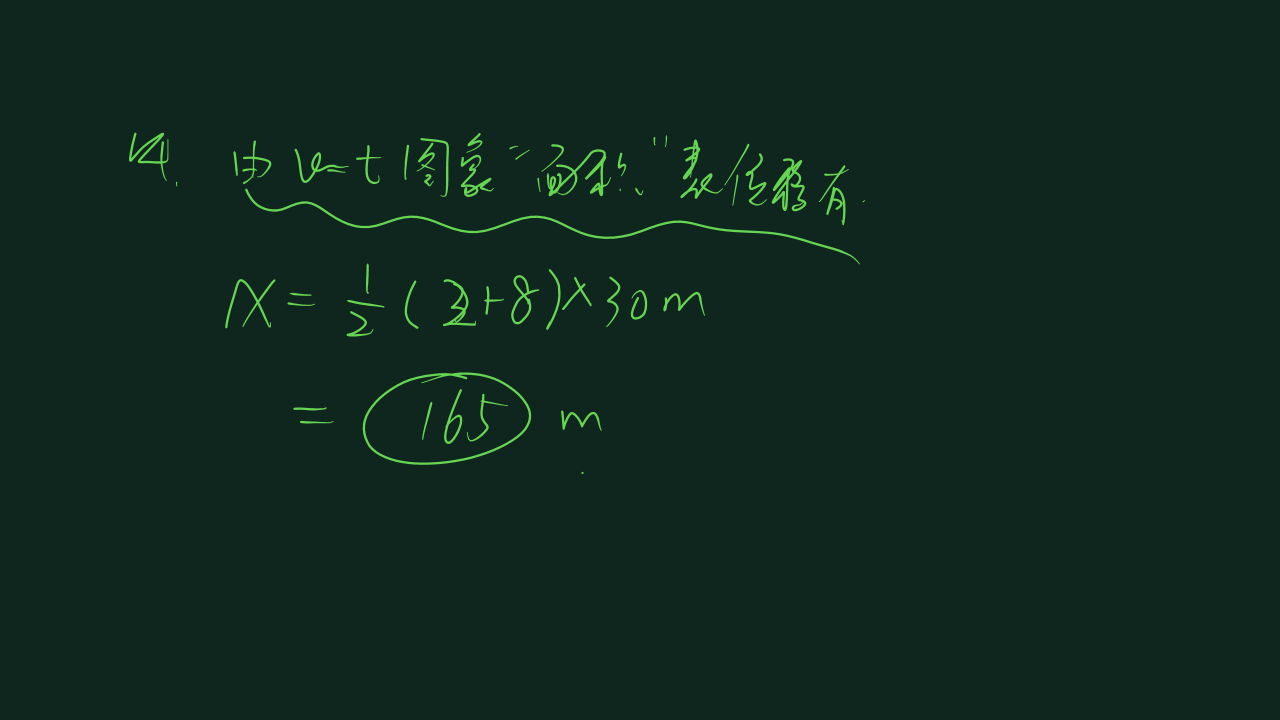 4. 由 v-t 图象"面积"表位移有.
x = 1/2 (3+8)×30 m
= 165 m